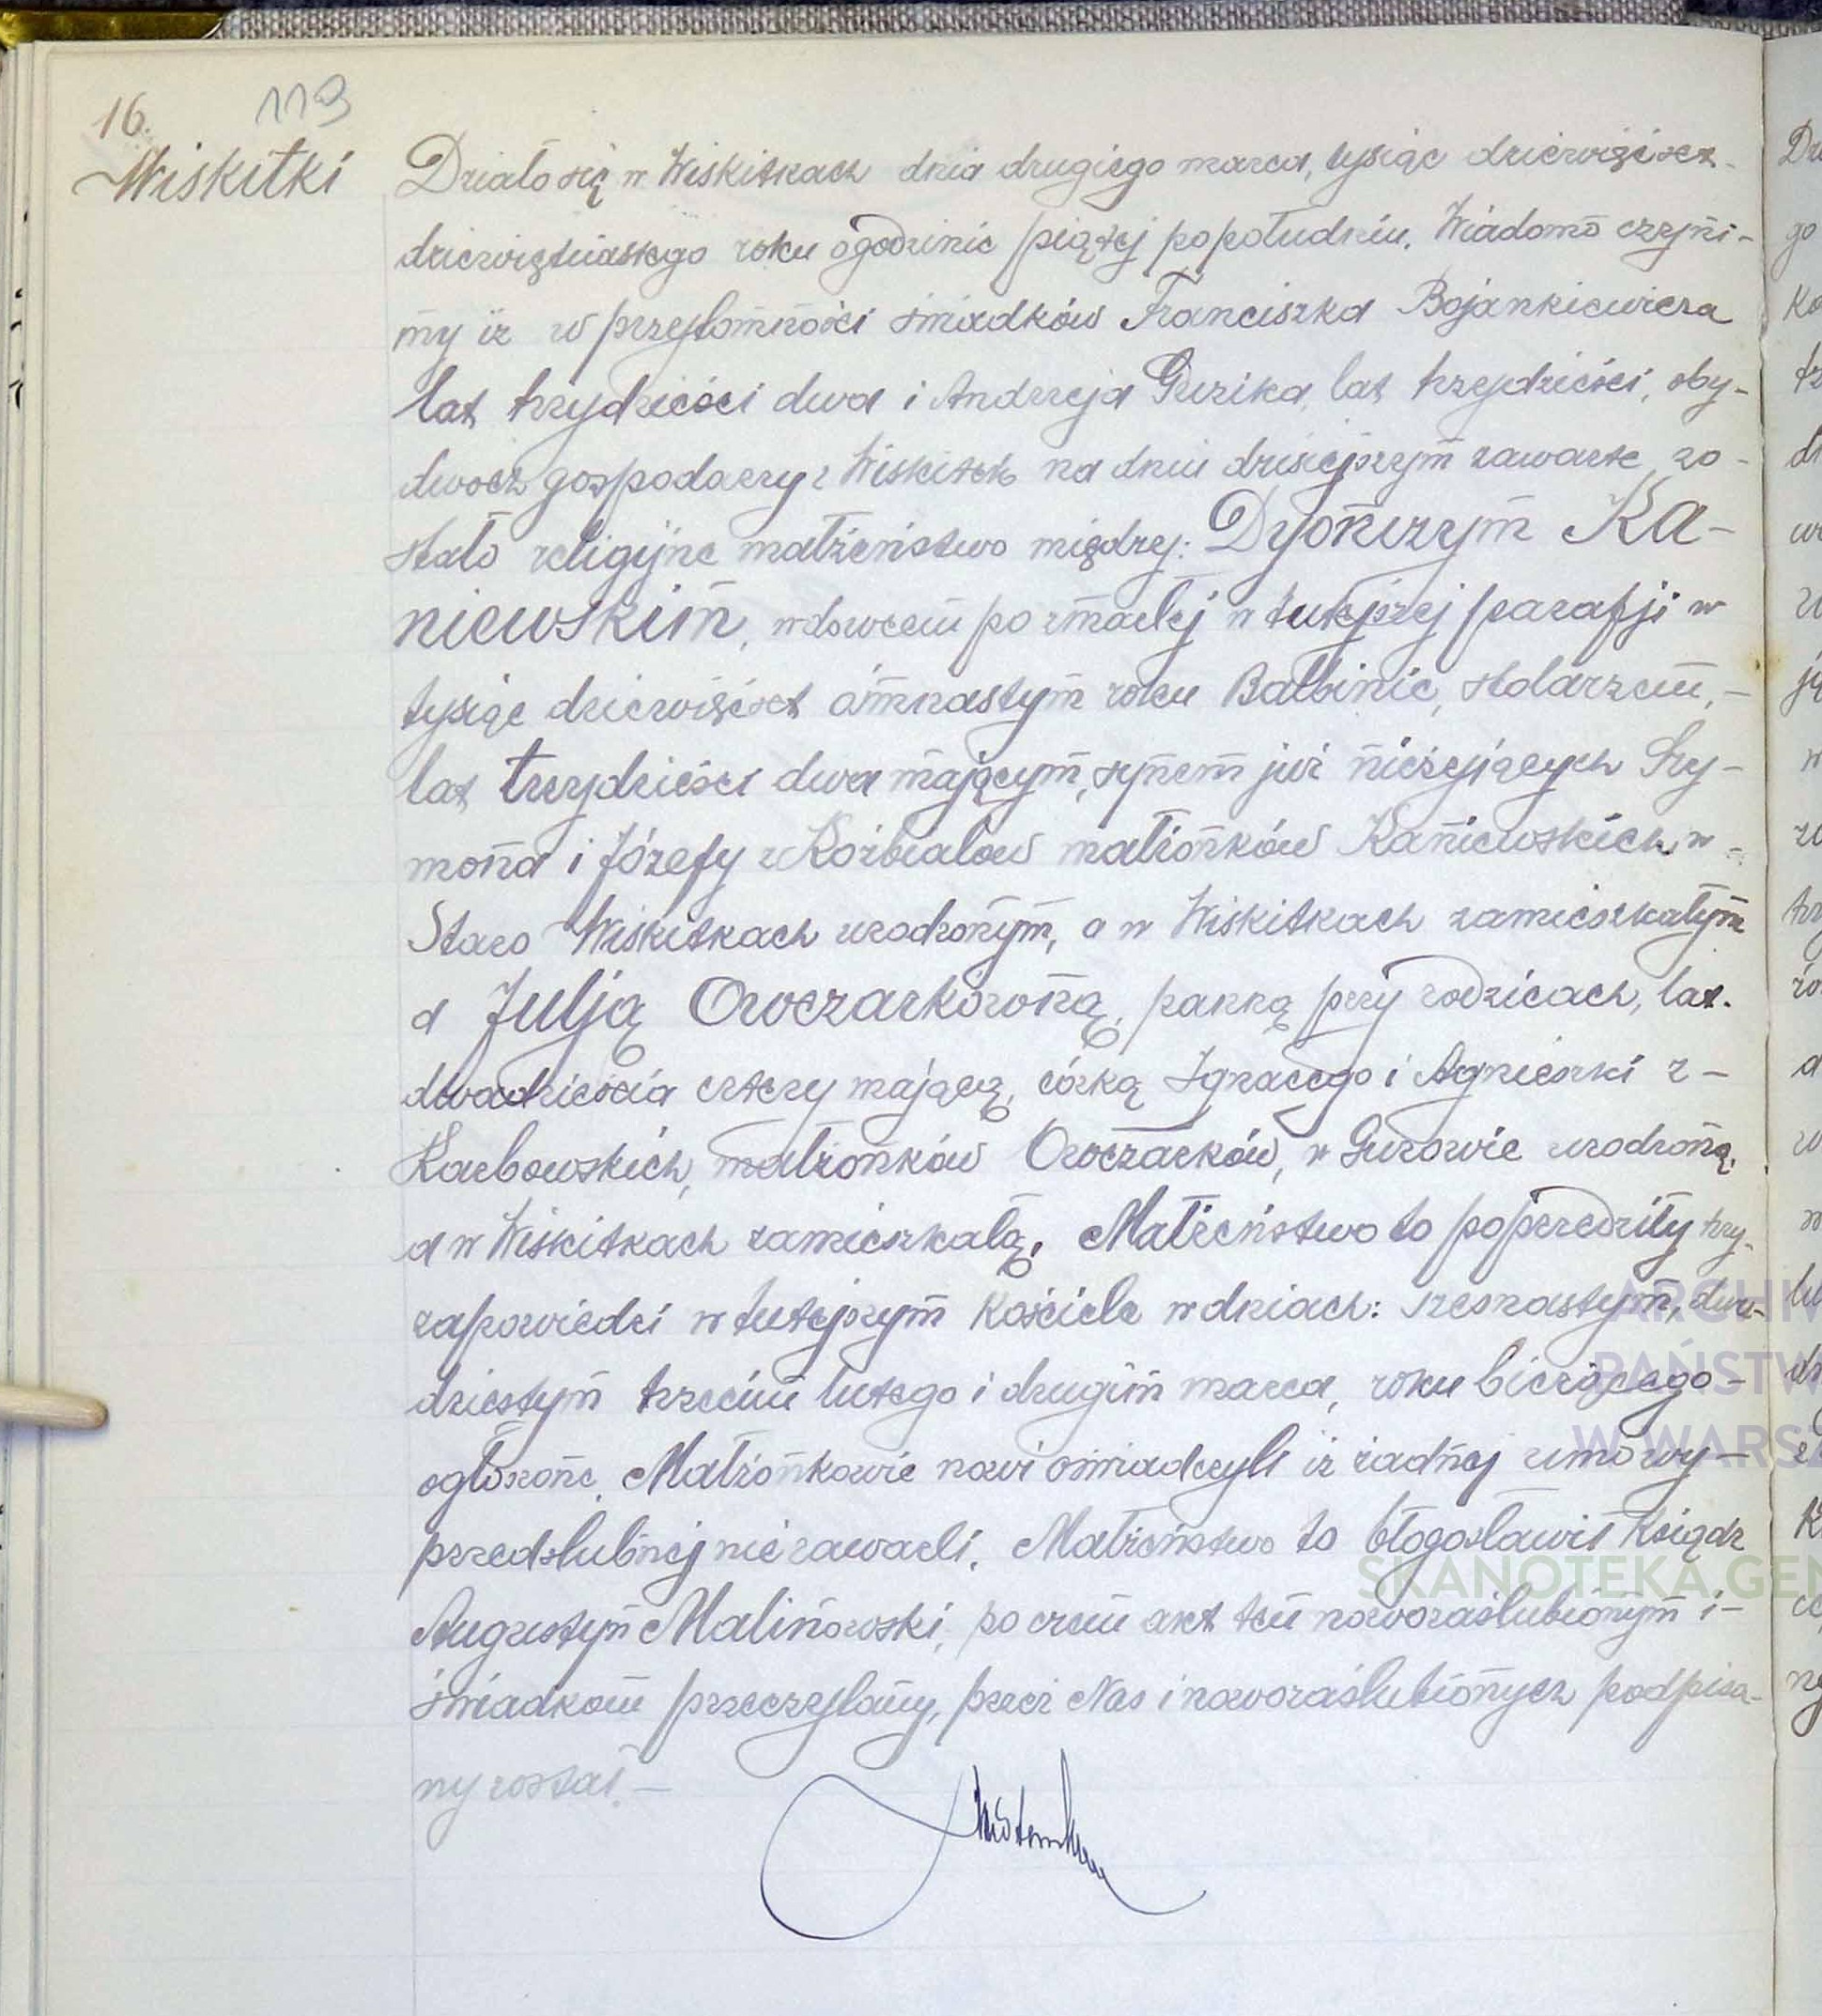 16.
119
Wiskitki
Działo się w Wiskitkach dnia drugiego marca, tysiąc dziewięćset
dziewiętnastego roku o godzinie piątej po południu. Wiadomo czyni-
my iż w przytomności świadków Franciszka Bojankiewicza
lat trzydzieści dwa i Andrzeja Guzika, lat trzydzieści, oby-
dwóch gospodarzy z Wiskitek na dniu dzisiejszym zawarte zo-
stało religijne małżeństwo między: Dyonizym Ka-
niewskim, wdowcem po zmarłej w tutejszej parafji w
tysiąc dziewięćset ósmnastym roku Balbinie, stolarzem,
lat trzydzieści dwa mającym, synem już nieżyjących Szy-
mona i Józefy z małżonków Kaniewskich w
Staro Wiskitkach urodzonym, a w Wiskitkach zamieszkałym
a Julją Owczarkówną, panną przy rodzicach, lat
dwadzieścia cztery mającą, córką Ignacego i Agnieszki z
Karbowskich, małżonków Owczarków, w Guzowie urodzoną,
a w Wiskitkach zamieszkałą. Małżeństwo to poprzedziły trzy
zapowiedzi w tutejszym Kościele w dniach: szesnastym, dwu-
dziestym trzecim lutego i drugim marca, roku bieżącego
ogłoszone. Małżonkowie nowi oświadczyli iż żadnej umowy
przedślubnej nie zawarli. Małżeństwo to błogosławił Ksiądz
Augustyn Malinowski, po czem akt ten nowozaślubionym i
świadkom przeczytany, przez Nas i nowozaślubionych podpisa-
ny został.
ARCHIW
PAŃSTW
W WARSZ
SKANOTEKA.GEN